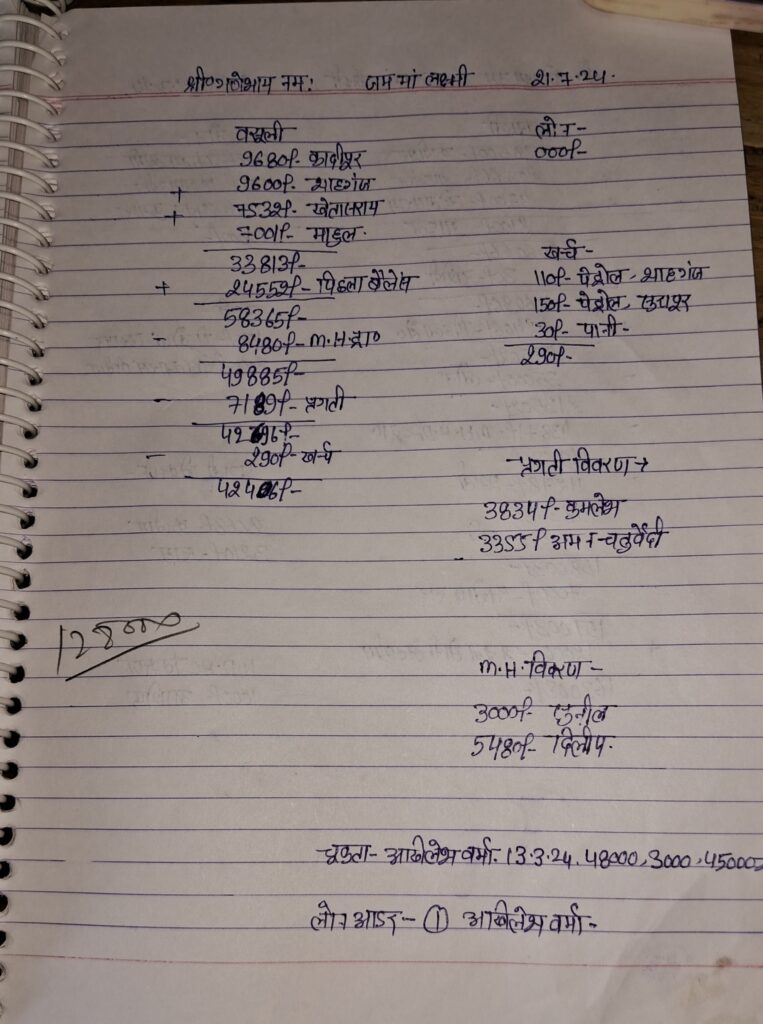 श्री गणेशाय नम: जय मां लक्ष्मी 21.7.24.
वसूली
9680/- कादीपुर
9600/- शाहगंज
+
7532/- खेतासराय
+
7001/- माहुल.
33813/-
+ 24552/- पिछला बैलेंस
58365/-
- 8480/- M.H. द्वा०
49885/-
- 7189/- प्रगती
42696/-
- 290/- खर्च
42406/-
128000
लोन-
000/-
खर्च-
110/- पेट्रोल - शाहगंज
150/- पेट्रोल -
30/- पानी-
290/-
प्रगती विवरण→
3834/- कमलेश
3355/- अमन चतुर्वेदी
M.H. विवरण -
3000/- सुनील
5480/- दिलीप.
चुकता- अखिलेश वर्मा. 13.3.24. 48000, 3000, 45000
लोन आडर- ① अखिलेश वर्मा-